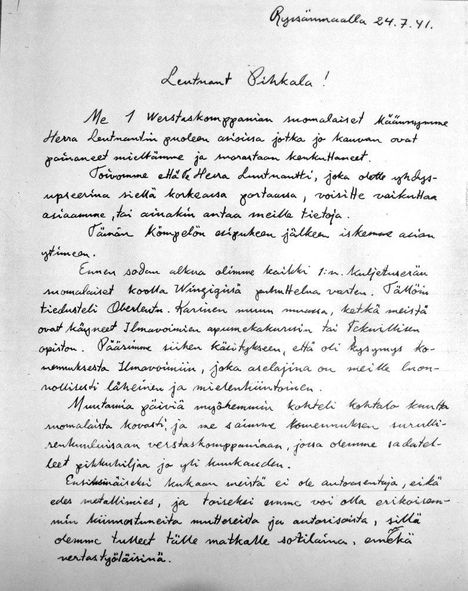 Ryssänmaalla 24.7.41.
Leutnant Pihkala!
Me 1 Werstaskomppanian suomalaiset käännymme
Herra Leutnantin puoleen asioissa jotka jo kauvan ovat
painaneet mieltämme ja suorastaan kenkuttaneet.
Toivomme että Te Herra Luutnantti, joka olette yhdys-
upseerina siellä korkeassa portaassa, voisitte vaikuttaa
asiaamme, tai ainakin antaa meille tietoja.
Tämän kömpelön esipuheen jälkeen iskemme asian
ytimeen.
Ennen sodan alkua olimme kaikki 1:n. Kuljetuserän
suomalaiset koolla Wingigissä puhuttelua varten. Tällöin
tiedusteli Oberleutn. Karinen muun muassa, ketkä meistä
ovat käyneet Ilmavoimien apumekakurssin tai Teknillisen
opiston. Pääsimme siihen käsitykseen, että oli kysymys ko-
mennuksesta Ilmavoimiin, joka aselajina on meille luon-
nollisesti läheinen ja mielenkiintoinen.
Muutamia päiviä myöhemmin kohteli kohtalo kuutta
suomalaista kovasti, ja me saimme komennuksen surulli-
senkuuluisaan verstaskomppaniaan, jossa olemme sadatel-
leet pikkuhiljaa jo yli kuukauden.
Ensinnäiseksi kukaan meistä ei ole autoasentaja, eikä
edes metallimies, ja toiseksi emme voi olla erikoisem-
min kiinnostuneita muttereista ja autorisoista, sillä
olemme tulleet tälle matkalle sotilaina, emmekä
verstastyöläisinä.